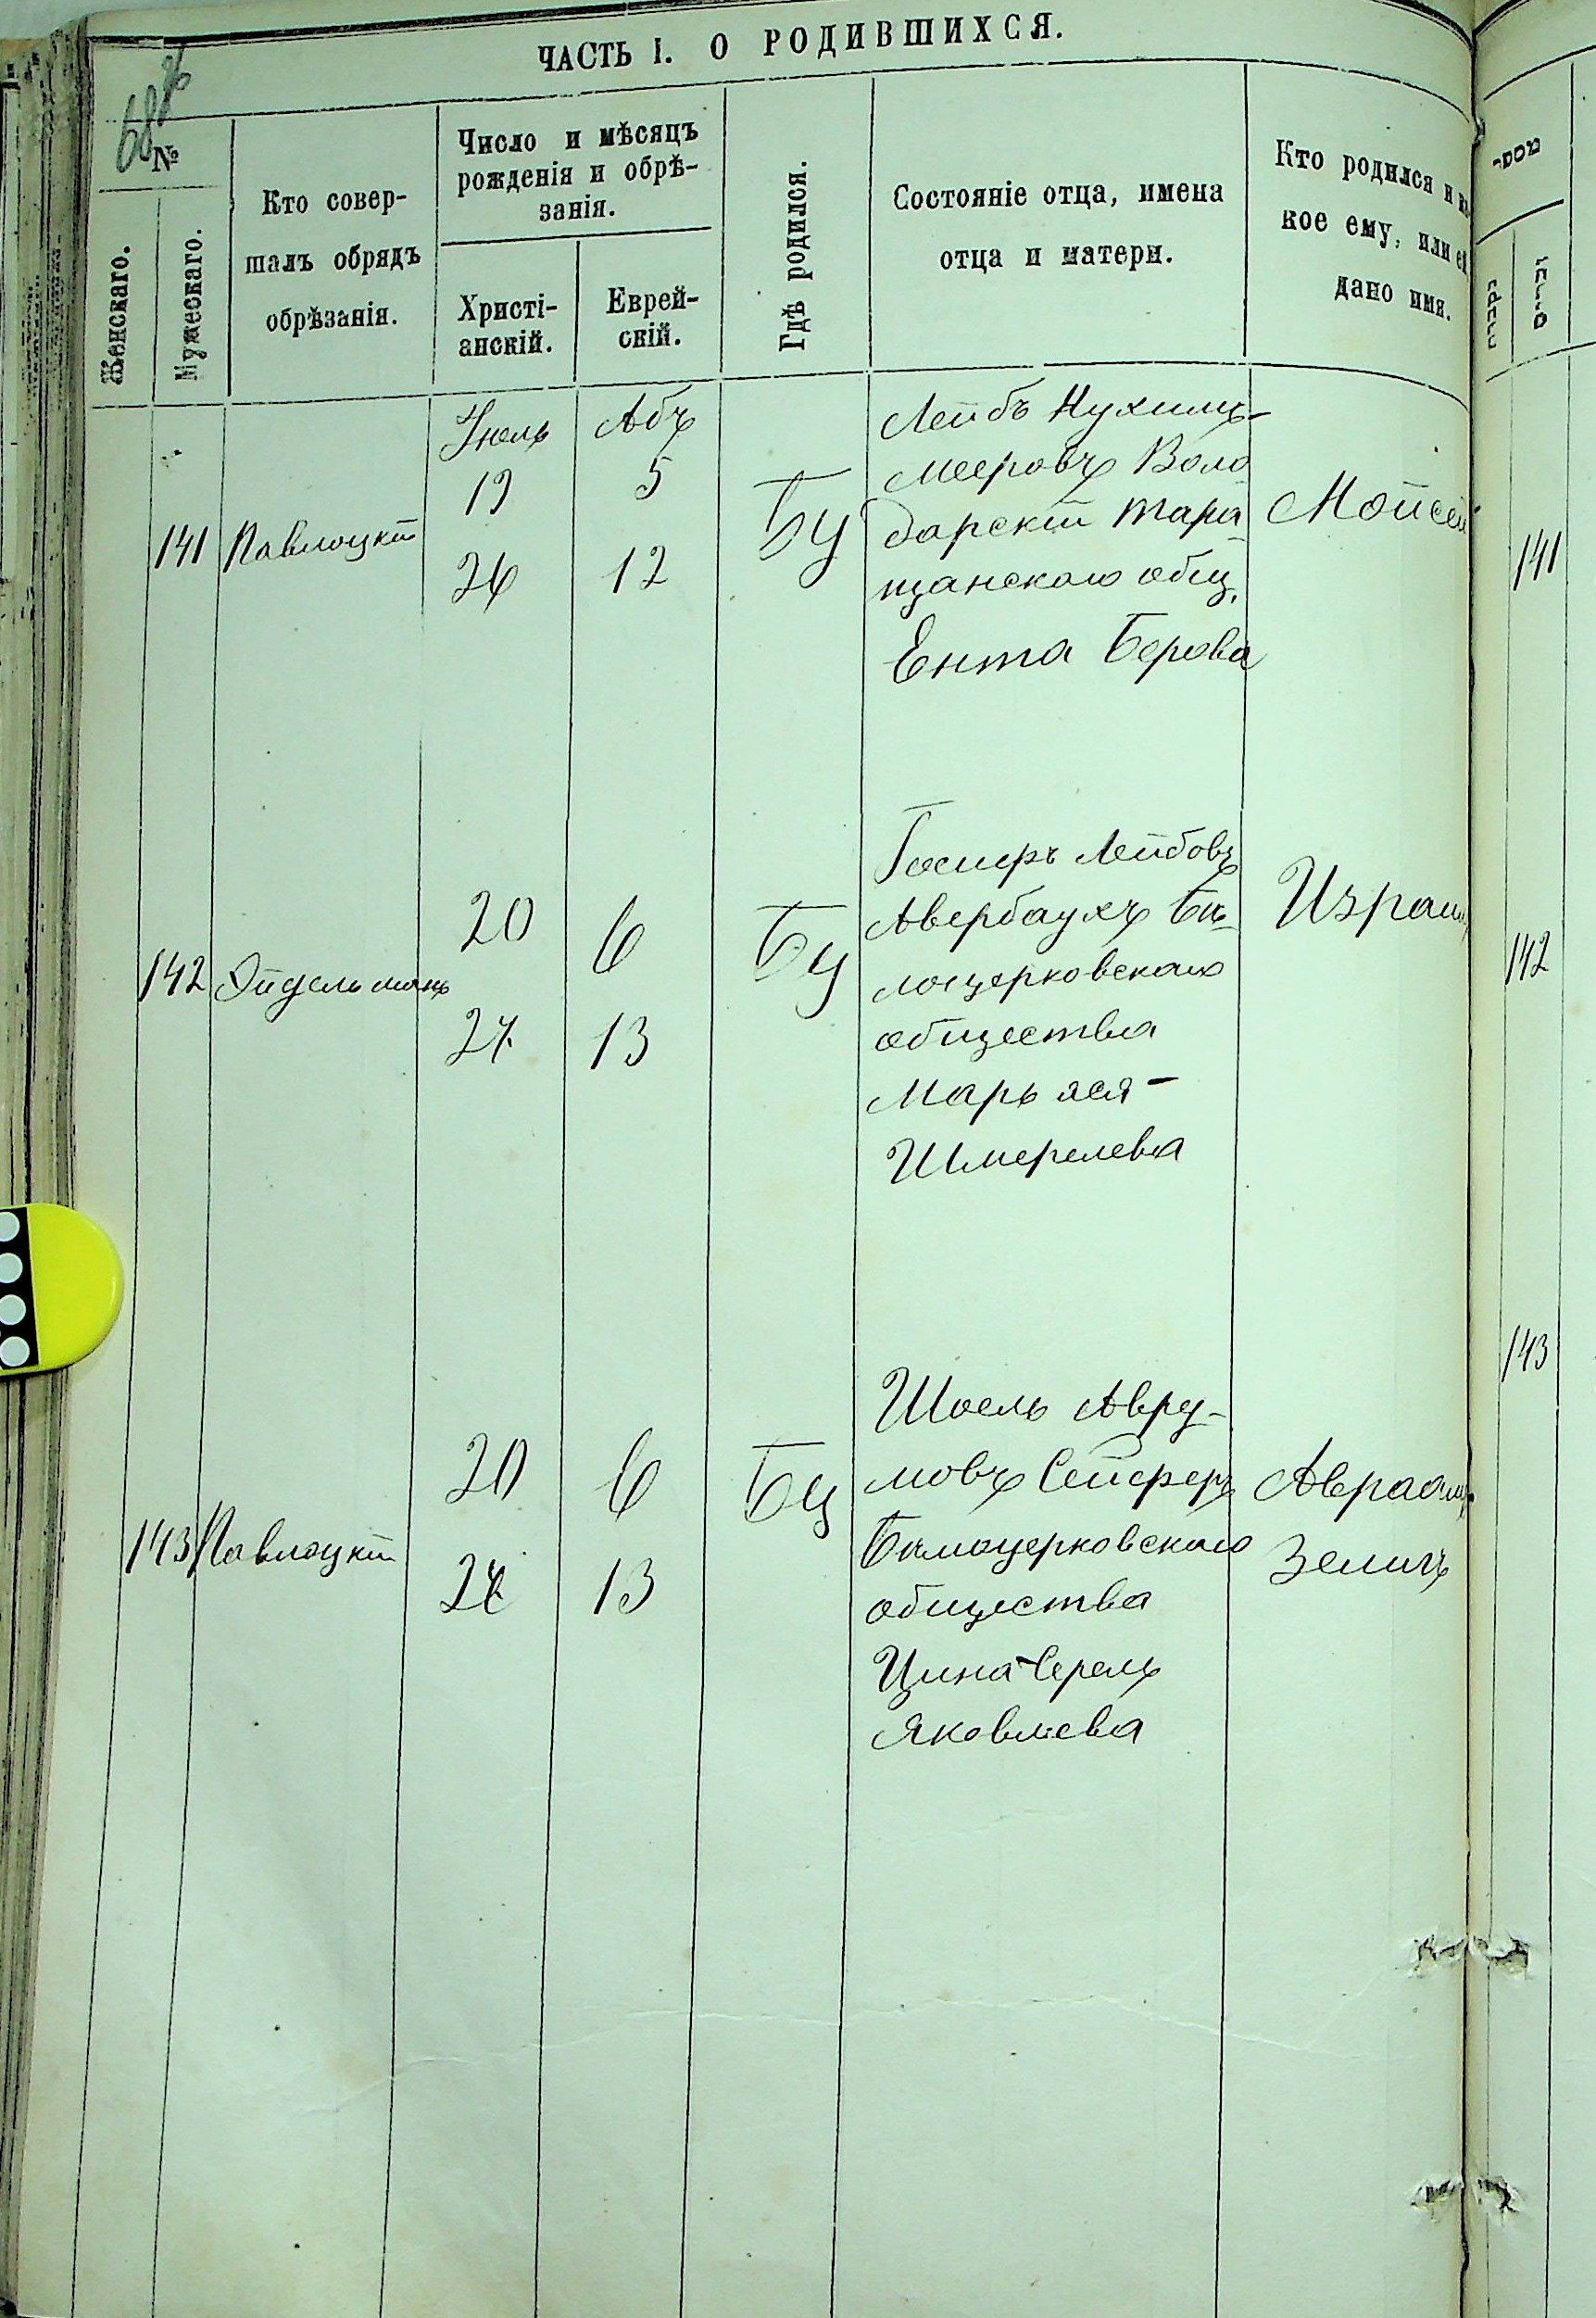 ЧАСТЬ I. О РОДИВШИХСЯ.
№
Женскаго.
Мужескаго.
Кто совер-
шалъ обрядъ
обрѣзанія.
Число и мѣсяцъ
рожденія и обрѣ-
занія.
Христі-
анскій.
Еврей-
скій.
Гдѣ родился.
Состояніе отца, имена
отца и матери.
Кто родился и ка
кое ему, или ей
дано имя.
מספר
נקבות
זכרים
141
Павлоцкій
Іюль
19
26
Абъ
5
12
БЦ
Лейбъ Нухимъ-
Мееровъ Воло
дарскій Тара
щанскаго общ.
Ента Берова
Мойсей
141
142
Эйдельманъ
20
27
6
13
БЦ
Лейбовъ
Авербаухъ Бѣ-
лоцерковскаго
общества
Марьяся-
Шмерелева
Израиль
142
143
Павлоцкій
20
27
6
13
БЦ
Шоель Авру-
мовъ Сейферъ
Бѣлоцерковскаго
общества
Цина-Серель
Яковлева
Авраамъ
Зелигъ
143